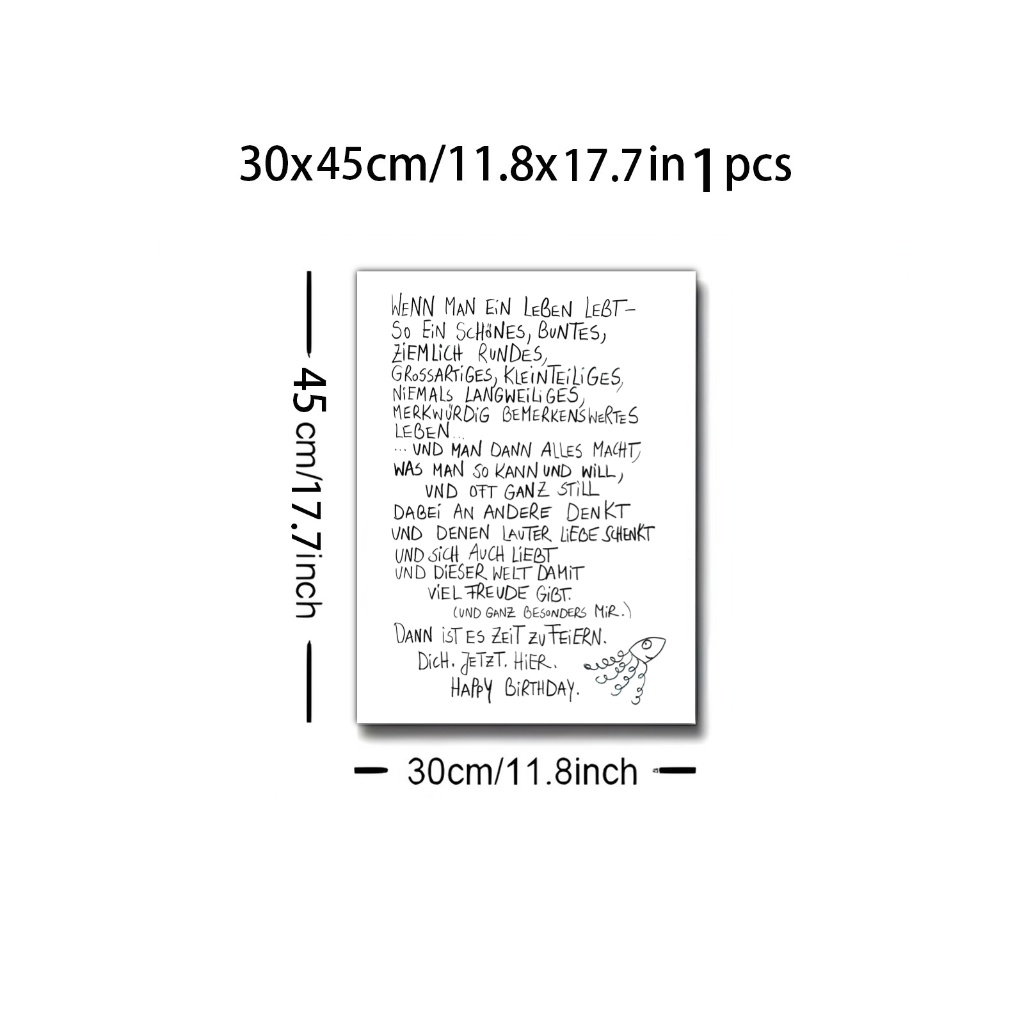 30x45cm/11.8x17.7in 1 pcs
45cm/17.7inch
WENN MAN EIN LEBEN LEBT –
SO EIN SCHÖNES, BUNTES,
ZIEMLICH RUNDES,
GROSSARTIGES, KLEINTEILIGES,
NIEMALS LANGWEILIGES,
MERKWÜRDIG BEMERKENSWERTES
LEBEN...
... UND MAN DANN ALLES MACHT,
WAS MAN SO KANN UND WILL,
UND OFT GANZ STILL
DABEI AN ANDERE DENKT
UND DENEN LAUTER LIEBE SCHENKT
UND SICH AUCH LIEBT
UND DIESER WELT DAMIT
VIEL FREUDE GIBT.
(UND GANZ BESONDERS MIR.)
DANN IST ES ZEIT ZU FEIERN.
DICH. JETZT. HIER.
HAPPY BIRTHDAY.
30cm/11.8inch